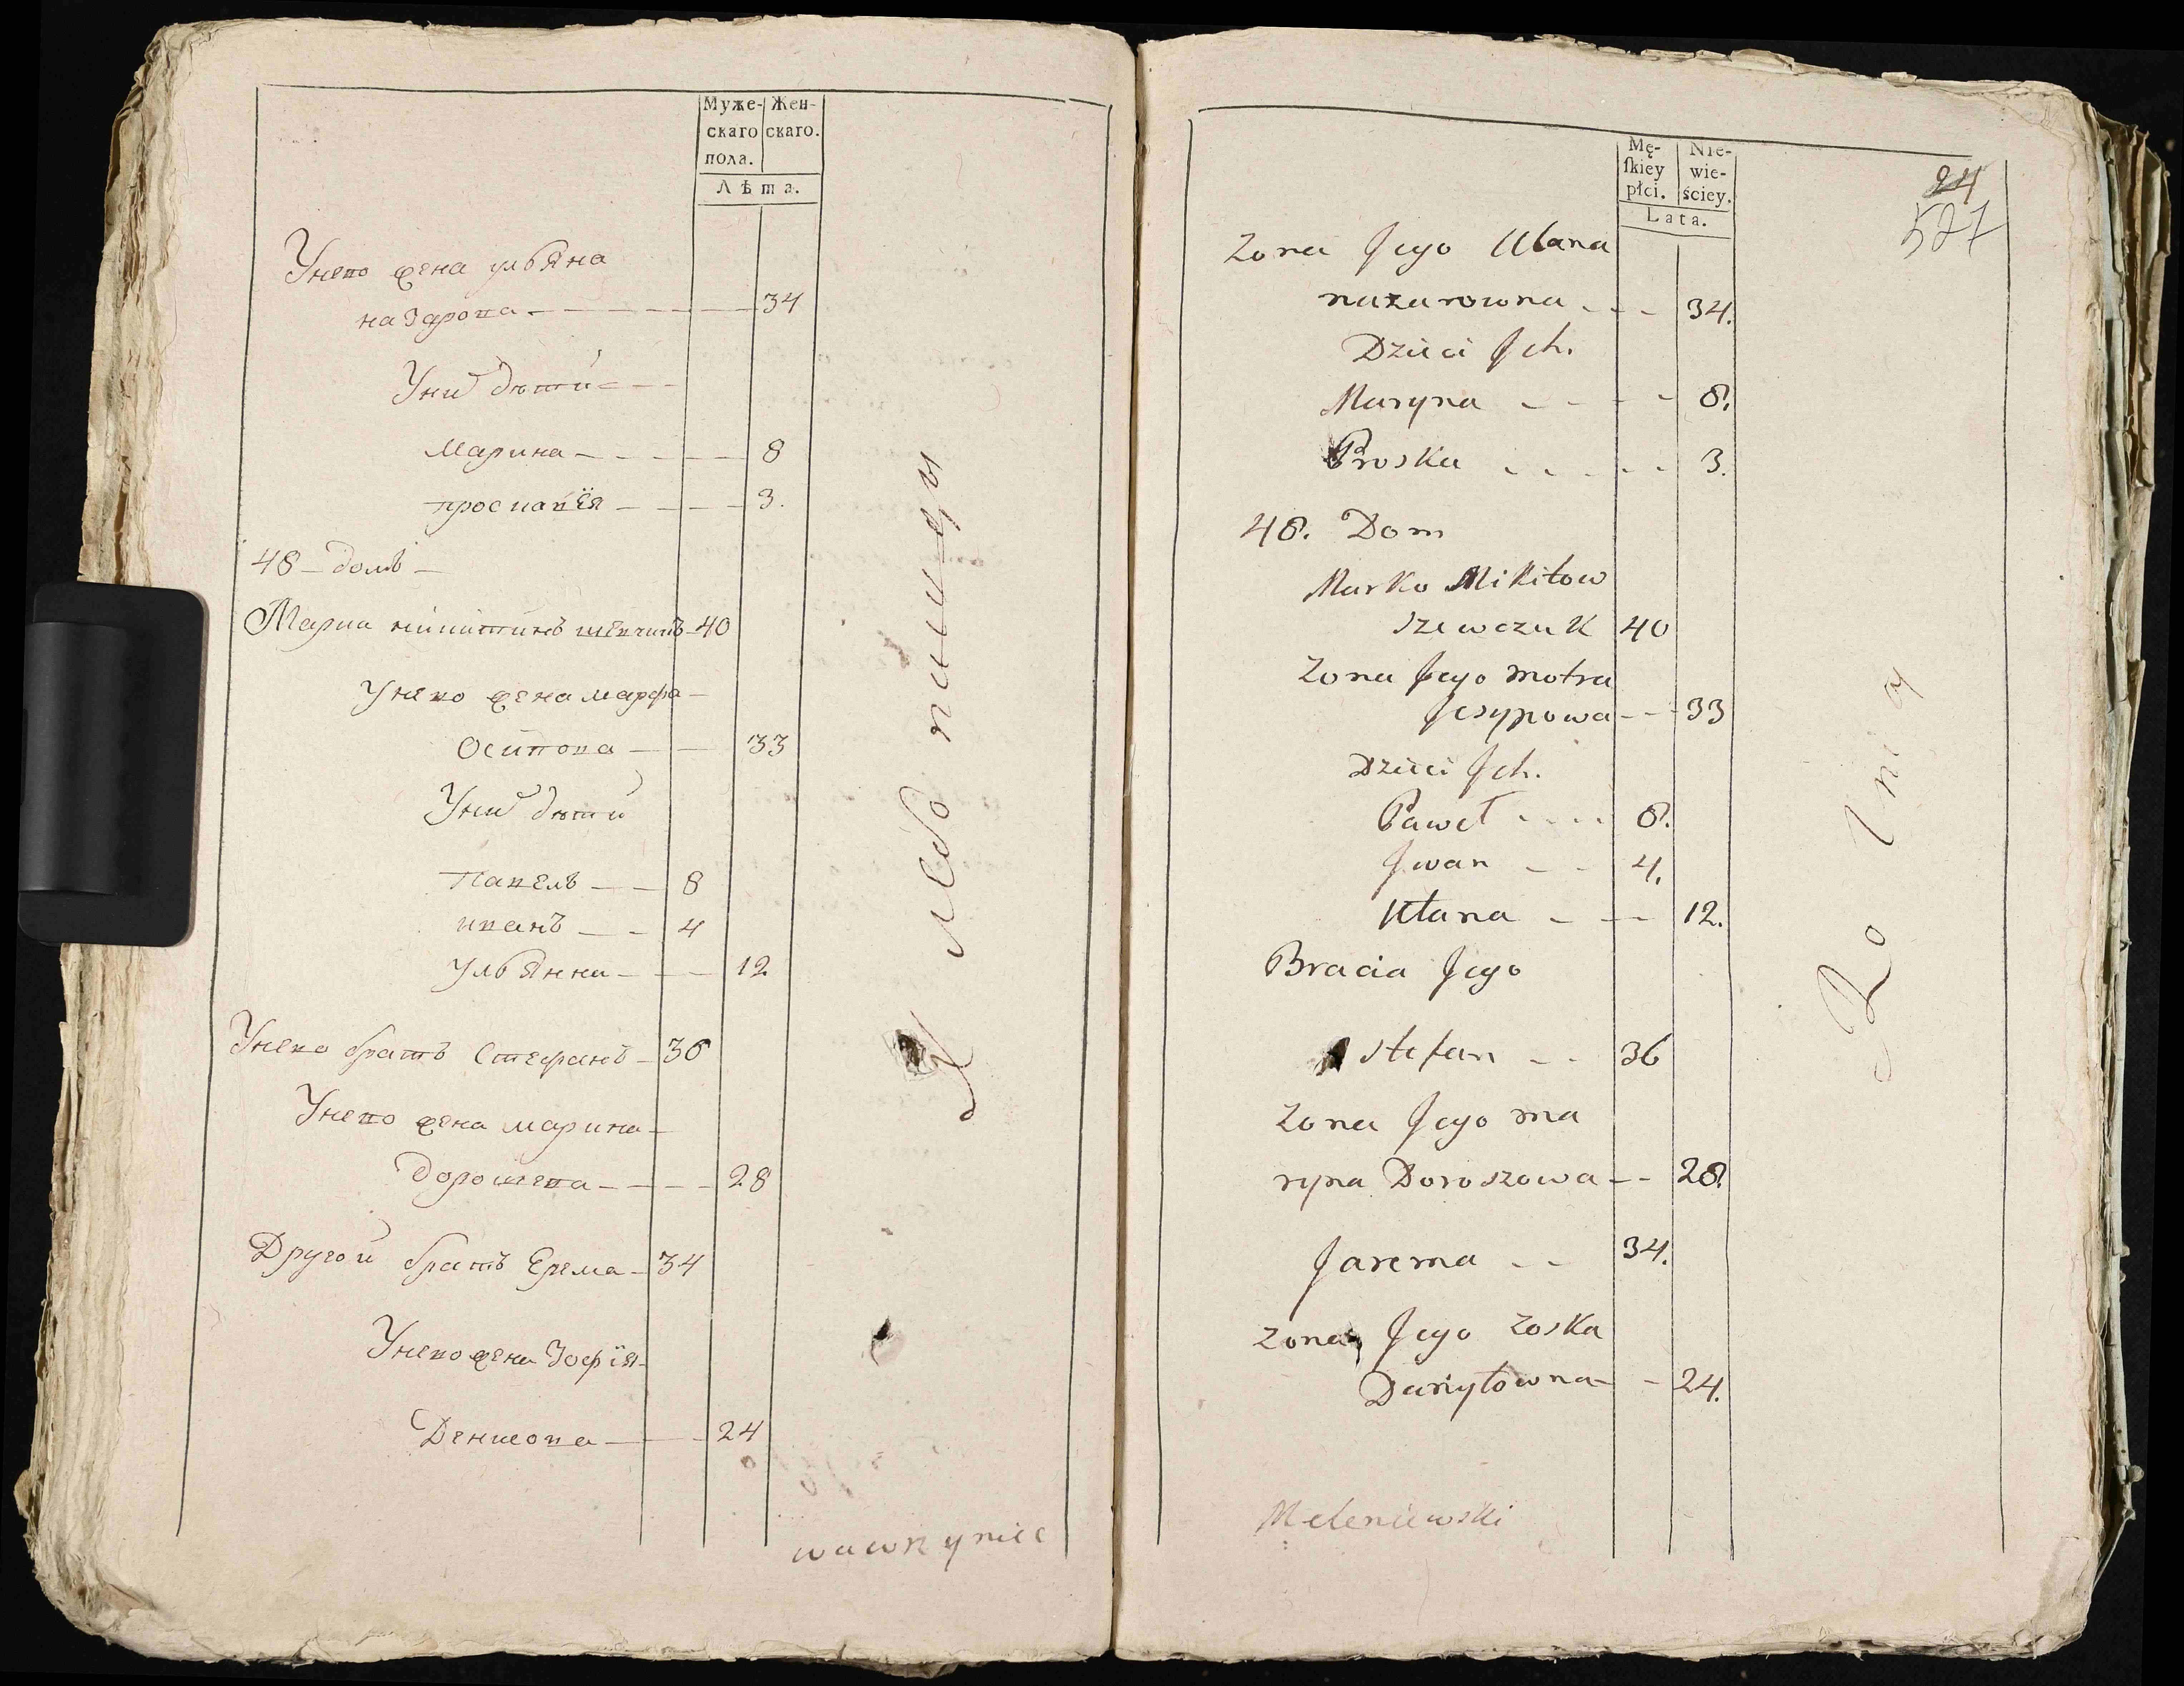 Муже-
скаго
пола.
Жен-
скаго.
Лѣта.
Унево жена ульяна
назарова 34
Уни дѣти
марина 8
проскавея 3.
48 домъ
Марки никитинъ шевчикъ 40
Унево жена марфа
Осипова 33
Уни дѣти
павелъ 8
иванъ 4
ульянна 12
Унево братъ Стефанъ 36
Унево жена марина
дорошева 28
Другой братъ Ерема 34
Унево жена Зофія
Денисова 24
хлебо пашцы
wawrzyniec
Mę-
ſkiey
płci.
Nie-
wie-
ściey.
Lata.
24
527
Zona Jego Ulana
nazarowna 34.
Dzieci Jch.
Maryna 8.
Proska 3.
48. Dom
Marko Mikitow
szewczuk 40
Zona Jego motra
Jesypowa 33
Dzieci Jch.
Paweł 8.
Jwan 4.
Ułana 12.
Bracia Jego
stefan 36
Zona Jego ma
ryna Doroszowa 28.
Jarema 34.
Zona Jego Zoska
Daniłowna 24.
Rolnicy
Meleniewski